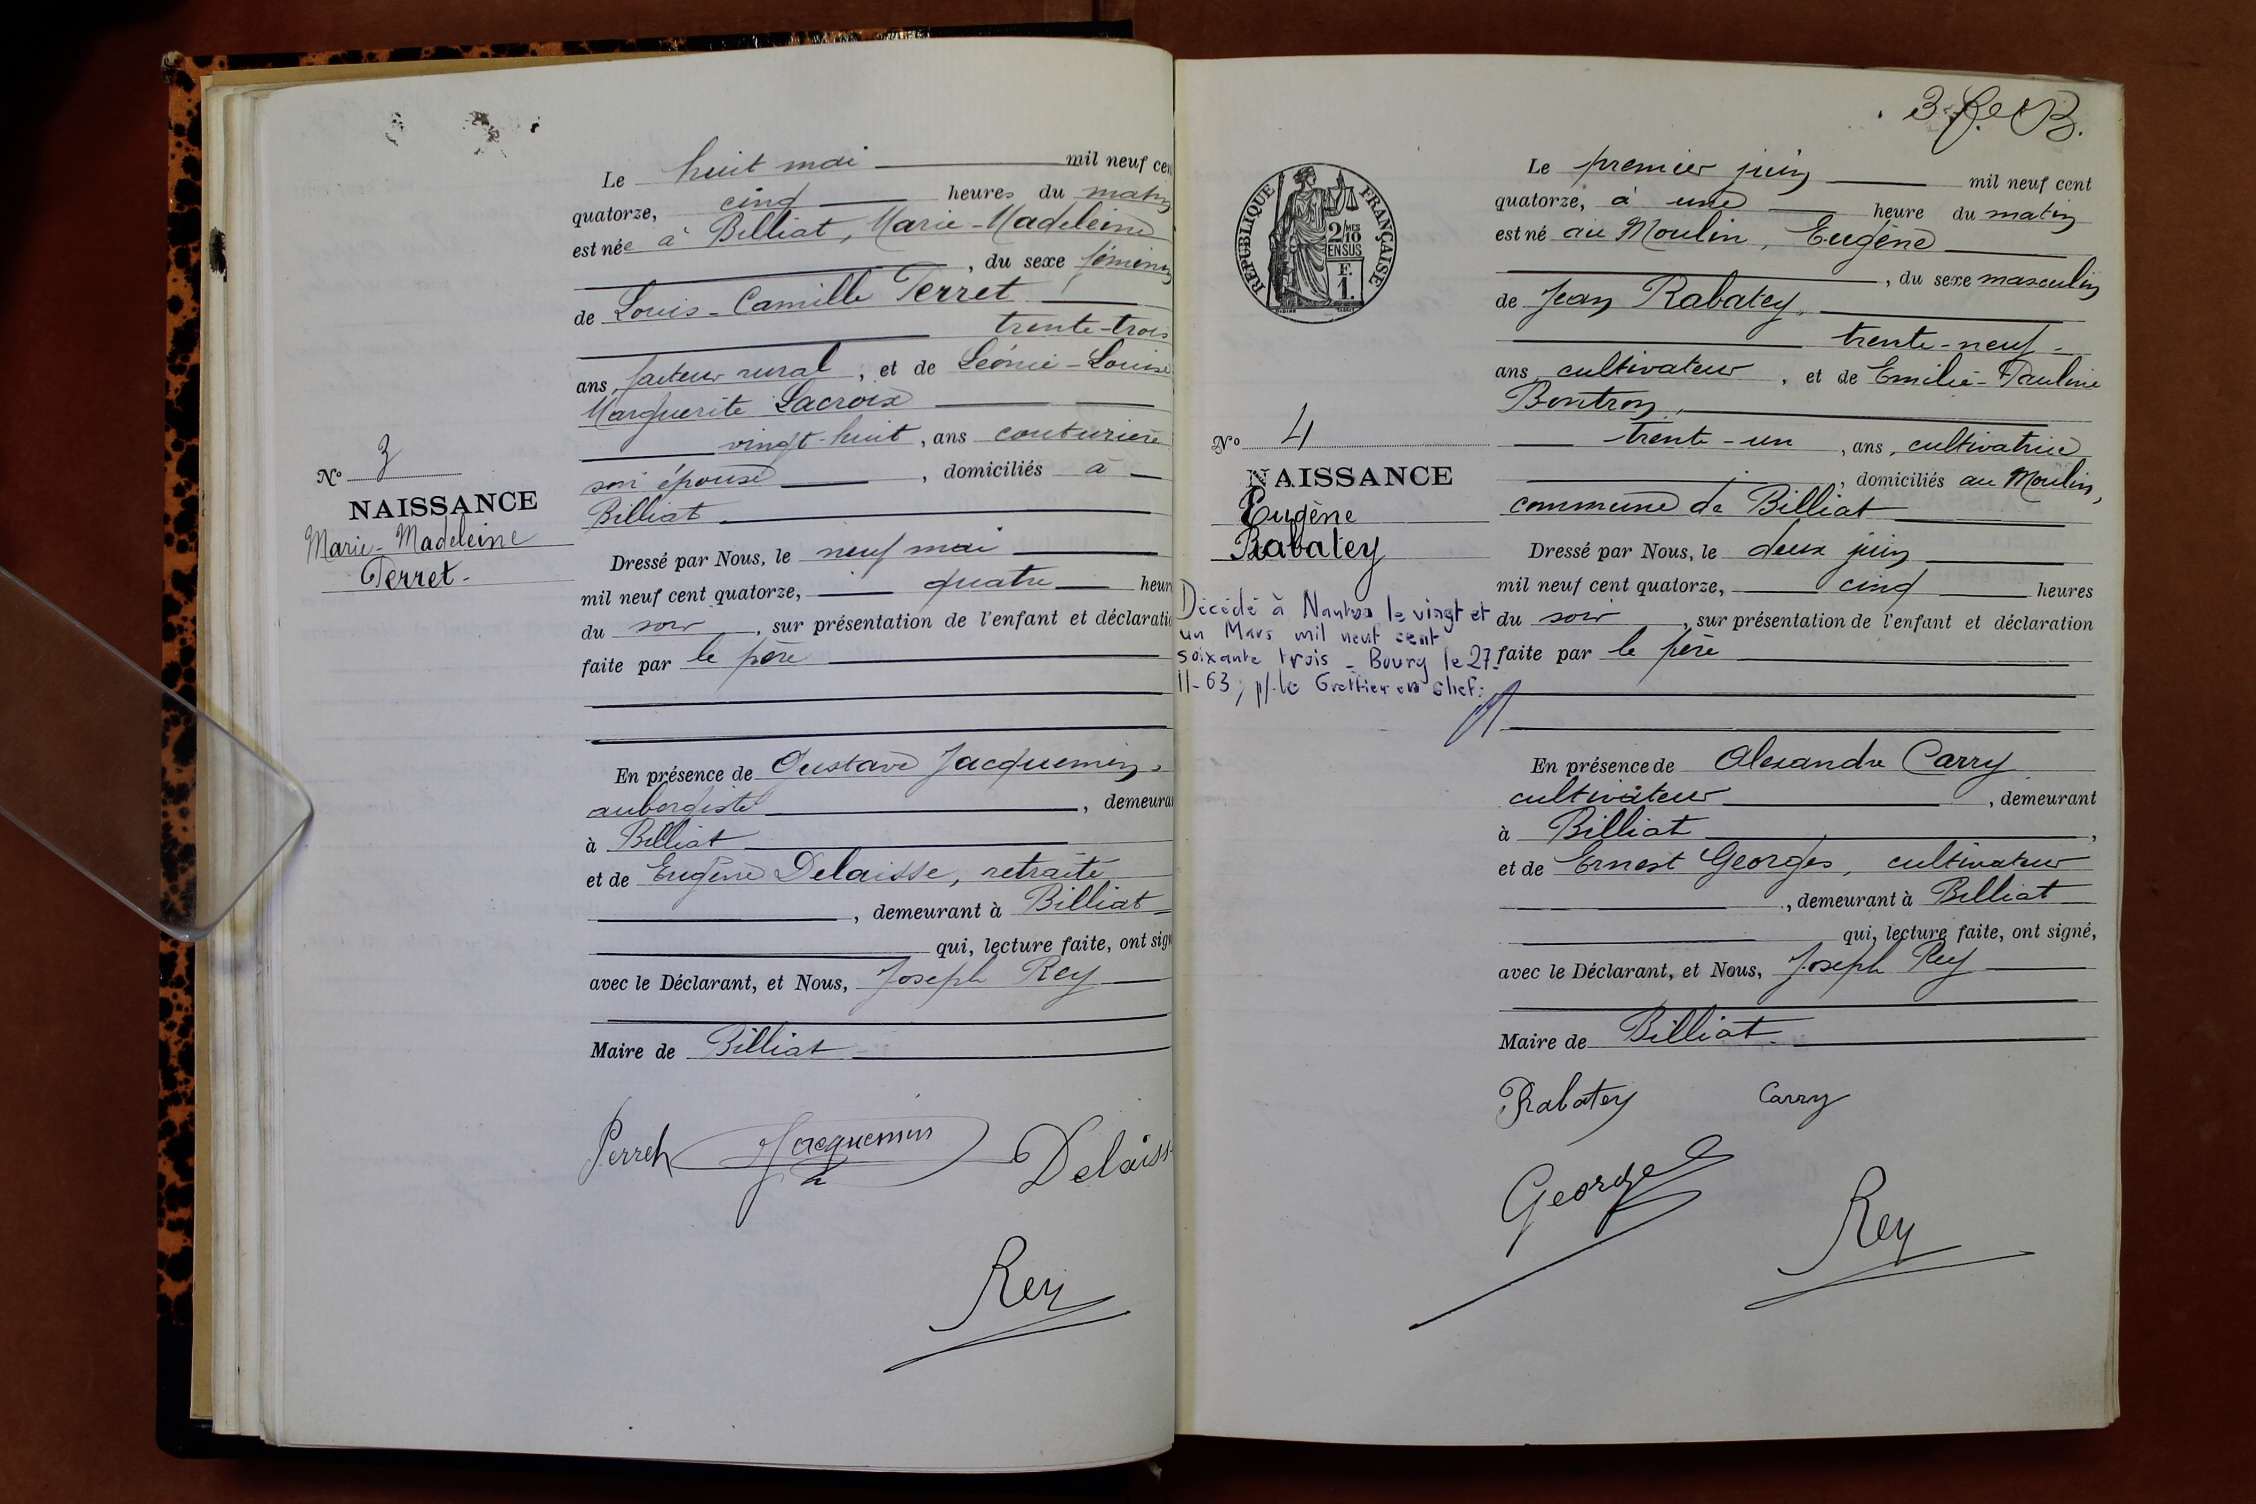 Le huit mai mil neuf cen
quatorze, cinq heures du matin
est née à Billiat, Marie-Madeleine
, du sexe féminin
de Louis-Camille Perret
trente-trois
ans, facteur rural, et de Léonie-Louise
Marguerite Lacroix
vingt-huit, ans couturière
son épouse, domiciliés à
Billiat
Dressé par Nous, le neuf mai
mil neuf cent quatorze, quatre heur
du soir, sur présentation de l'enfant et déclaratio
faite par le père
En présence de Gustave Jacquemin,
aubergiste, demeura
à Billiat
et de Eugène Delaisse, retraité
, demeurant à Billiat
qui, lecture faite, ont sign
avec le Déclarant, et Nous, Joseph Rey
Maire de Billiat
Perret Jacquemin Delaiss
Rey
N° 3
NAISSANCE
Marie-Madeleine
Perret.
3.
REPUBLIQUE FRANÇAISE
2/10
MES
EN SUS
F.
1.
N° 4
NAISSANCE
Eugène
Rabatey
Décédé à Nantua le vingt et
un Mars mil neuf cent
soixante trois - Bourg le 27-
11-63; p/ le Greffier en chef:
Le premier juin mil neuf cent
quatorze, à une heure du matin
est né au Moulin, Eugène
, du sexe masculin
de Jean Rabatey,
trente-neuf
ans, cultivateur, et de Emilie-Pauline
Bontron,
trente-un, ans, cultivatrice
, domiciliés au Moulin,
commune de Billiat
Dressé par Nous, le deux juin
mil neuf cent quatorze, cinq heures
du soir, sur présentation de l'enfant et déclaration
faite par le père
En présence de Alexandre Carry
cultivateur, demeurant
à Billiat,
et de Ernest Georges, cultivateur
, demeurant à Billiat
qui, lecture faite, ont signé,
avec le Déclarant, et Nous, Joseph Rey
Maire de Billiat.
Rabatey Carry
Georges
Rey